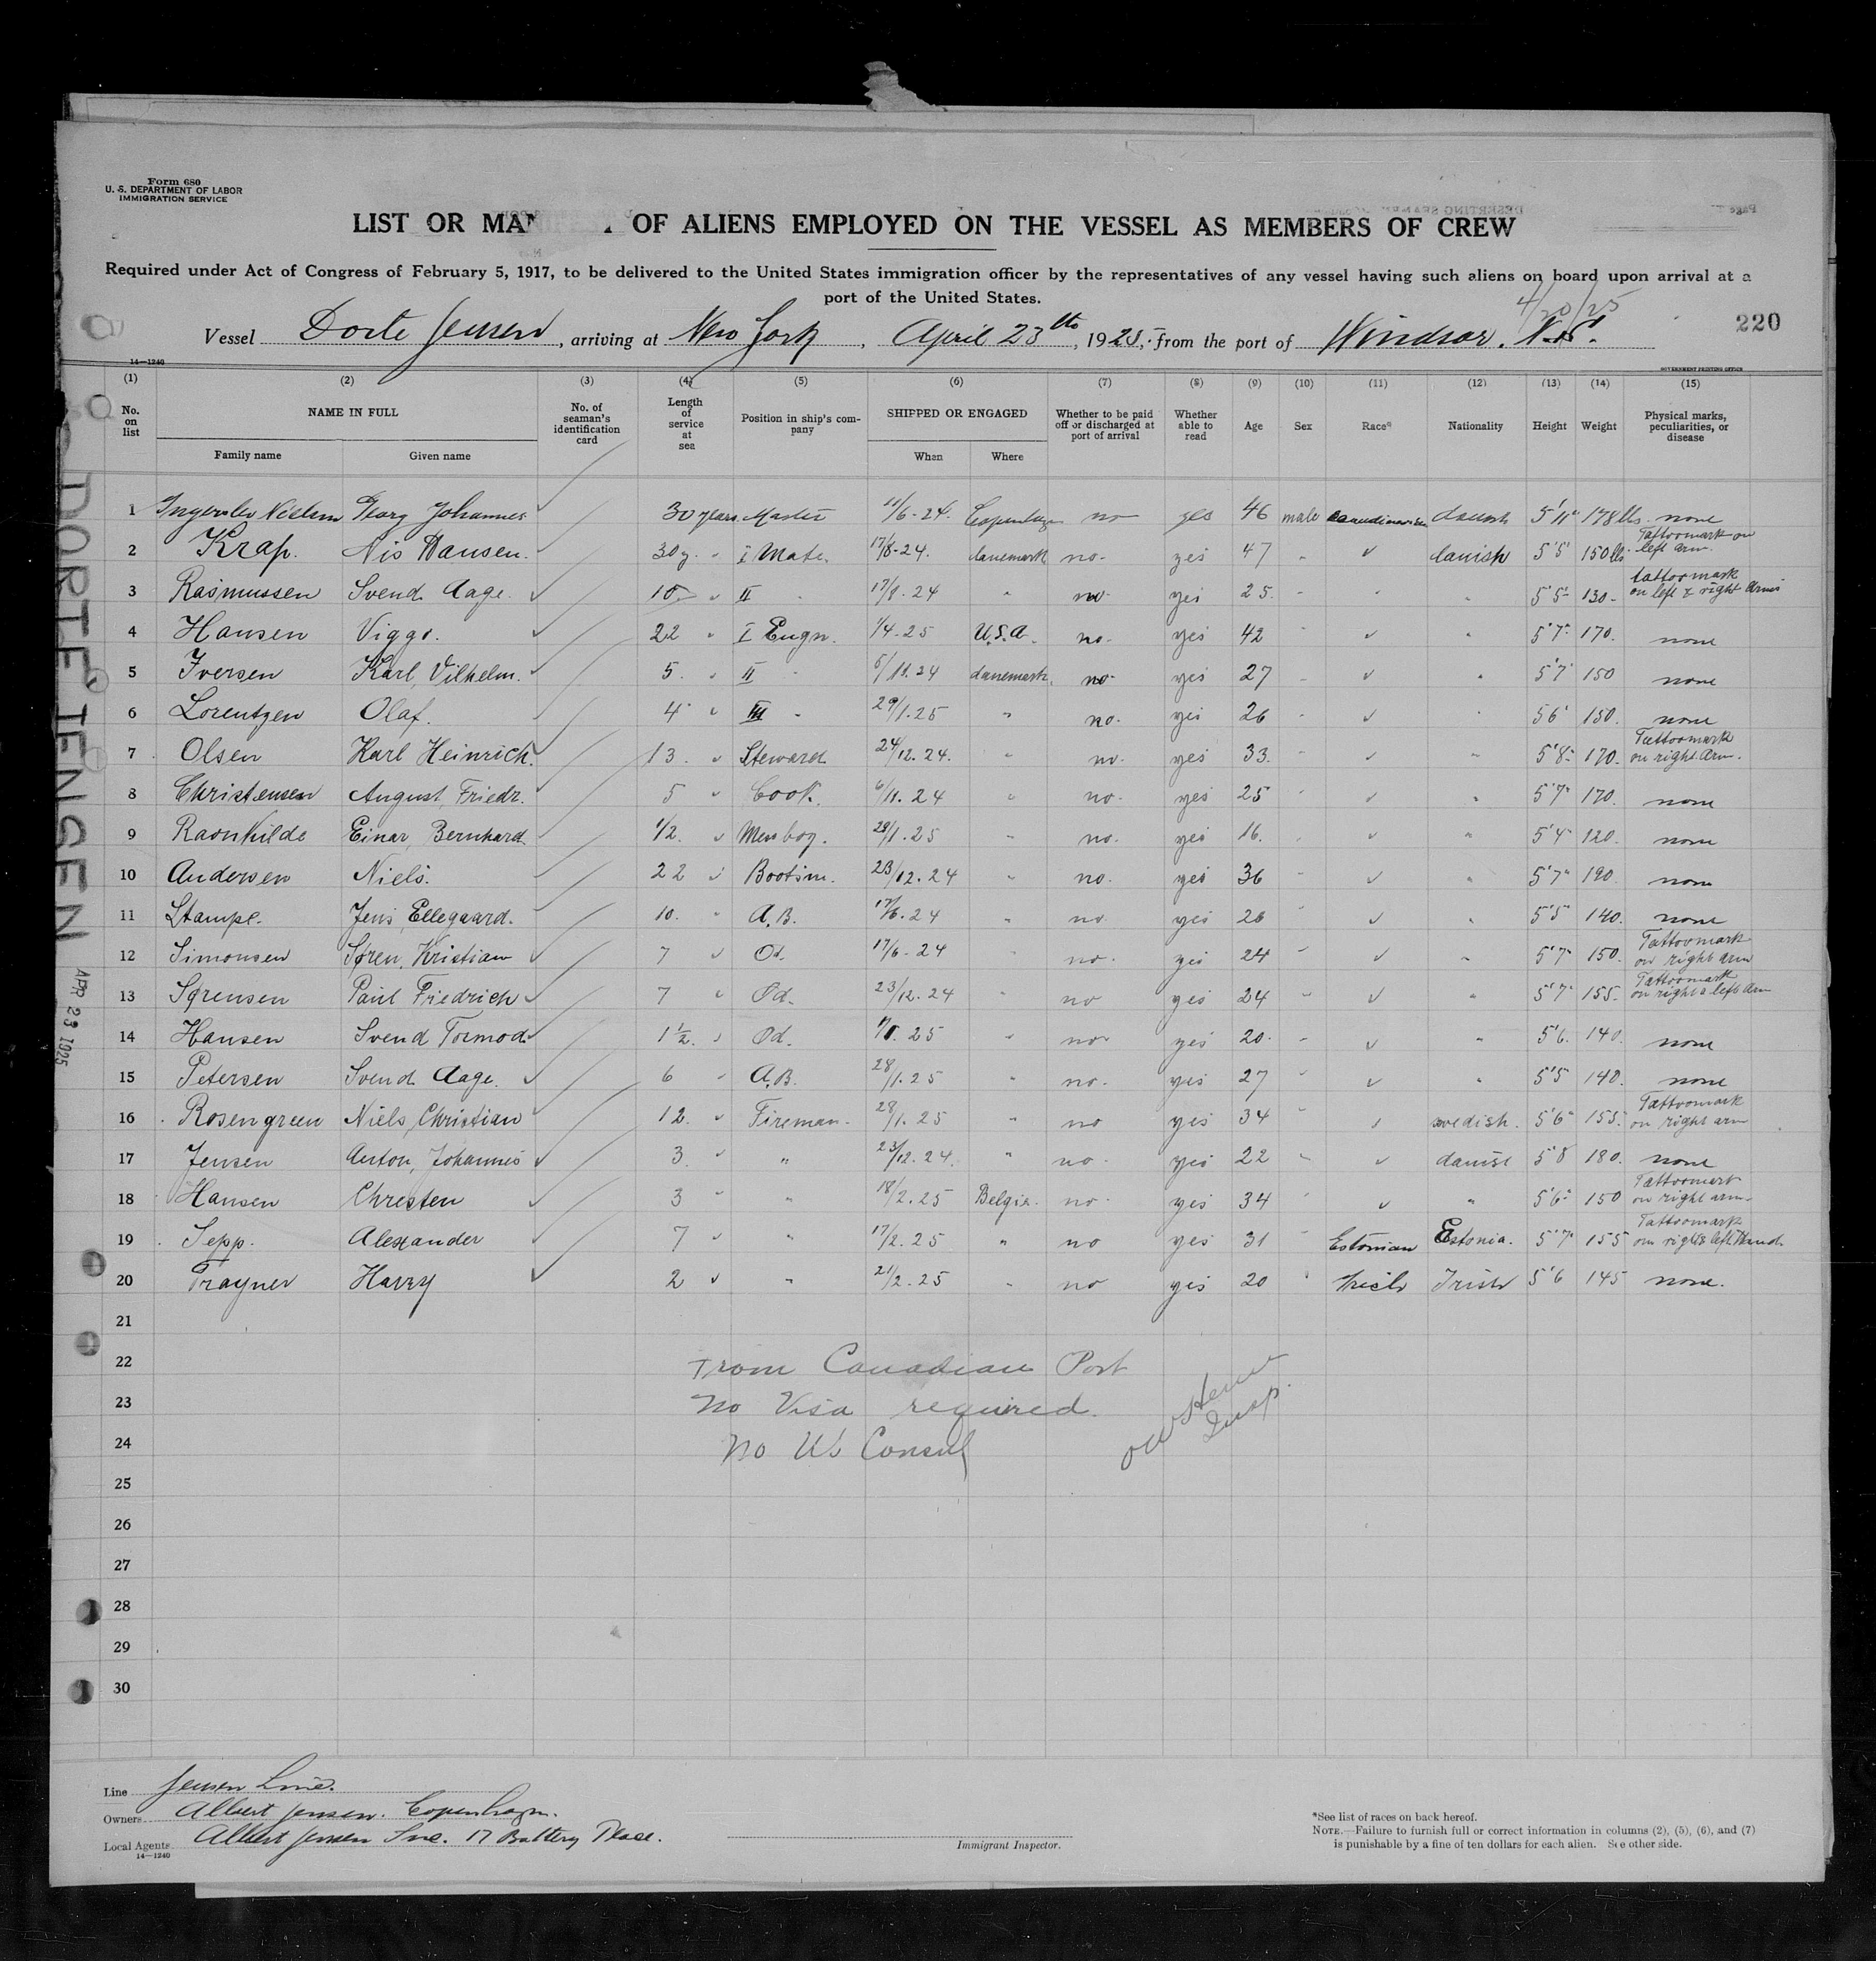 Form 680
U. S. DEPARTMENT OF LABOR
IMMIGRATION SERVICE
LIST OR MAN OF ALIENS EMPLOYED ON THE VESSEL AS MEMBERS OF CREW
Required under Act of Congress of February 5, 1917, to be delivered to the United States immigration officer by the representatives of any vessel having such aliens on board upon arrival at a
port of the United States.
4/20/25
220
Vessel Dorte Jensen, arriving at New York, April 23th, 1925, from the port of Windsor. N.S.
14—1240
GOVERNMENT PRINTING OFFICE
(1) (2) (3) (4) (5) (6) (7) (8) (9) (10) (11) (12) (13) (14) (15)
No. on list NAME IN FULL No. of seaman's identification card Length of service at sea Position in ship's company SHIPPED OR ENGAGED Whether to be paid off or discharged at port of arrival Whether able to read Age Sex Race* Nationality Height Weight Physical marks, peculiarities, or disease
Family name Given name When Where
1 Nielsen Georg Johannes 30 years Master 11/6-24. Copenhagen no yes 46 male Scandinavian danish 5'11" 178 lbs. none
2 Krap. Nis Hansen. 30 y. " I Mate. 17/8-24. danemark no. yes 47 " danish 5'5" 150 lb. Tattoomark on left arm.
3 Rasmussen Svend Aage. 10 " II " 17/8-24 " no. yes 25. " " " 5'5" 130- tattoomark on left & right arms
4 Hansen Viggo. 22 " I Engn. 1/4-25 U.S.A. no. yes 42 " " " 5'7" 170. none
5 Iversen Karl, Vilhelm. 5. " II " 6/11.24 danemark. no. yes 27 " " " 5'7" 150 none
6 Lorentzen Olaf. 4 " III " 29/1.25 " no. yes 26 " " " 5 6' 150. none
7 Olsen Karl Heinrich. 13. " Steward 24/12.24. " no. yes 33. " " " 5'8" 170. Tattoomark on right arm.
8 Christensen August, Friedr. 5 " Cook. 6/11.24 " no. yes 25 " " " 5'7" 170. none
9 Einar, Bernhard. 1/2. " Messboy. 29/1.25 " no. yes 16. " " " 5'4" 120. none
10 Andersen Niels. 22 " Bootsm. 23/12.24 " no. yes 36 " " " 5'7" 190. none
11 Stampe. Jens, Ellegaard. 10. " A.B. 17/6.24 " no yes 26 " " " 5'5" 140. none
12 Simonsen Søren, Kristian 7 " Od. 17/6-24 " no. yes 24 " " " 5'7" 150. Tattoomark on right arm
13 Sørensen Paul Friedrich 7 " Od. 23/12.24 " no yes 24 " " " 5'7" 155. Tattoomark on right & left arm
14 Hansen Svend Tormod 1½. " Od. 25 " no yes 20. " " " 5'6. 140. none
15 Petersen Svend Aage. 6 " A.B. 28/1.25 " no. yes 27 " " " 5'5 140. none
16 Rosengreen Niels, Christian 12. " Fireman. 28/1.25 " no yes 34 " " swedish. 5'6" 155. Tattoomark on right arm
17 Jensen Anton, Johannes 3. " " 23/12.24. " no. yes 22 " " danish 5'8 180. none
18 Hansen Chresten 3 " " 18/2.25 Belgia. no. yes 34 " " " 5'6" 150 Tattoomark on right arm
19 Sepp. Alexander 7 " " 17/2.25 " no yes 31 " Estonian Estonia. 5'7" 155 Tattoomark on right & left Hand
20 Trayner Harry 2 " " 21/2.25 " no yes 20 " Irish Irish 5'6 145 none.
21
22 From Canadian Port
23 No Visa required.
24 No US Consul
Insp.
25
26
27
28
29
30
DORTE JENSEN APR 23 1925
Line Jensen Line.
Owners Albert Jensen. Copenhagen.
Local Agents Albert Jensen Inc. 17 Battery Place.
14—1240
Immigrant Inspector.
*See list of races on back hereof.
NOTE.—Failure to furnish full or correct information in columns (2), (5), (6), and (7)
is punishable by a fine of ten dollars for each alien. See other side.